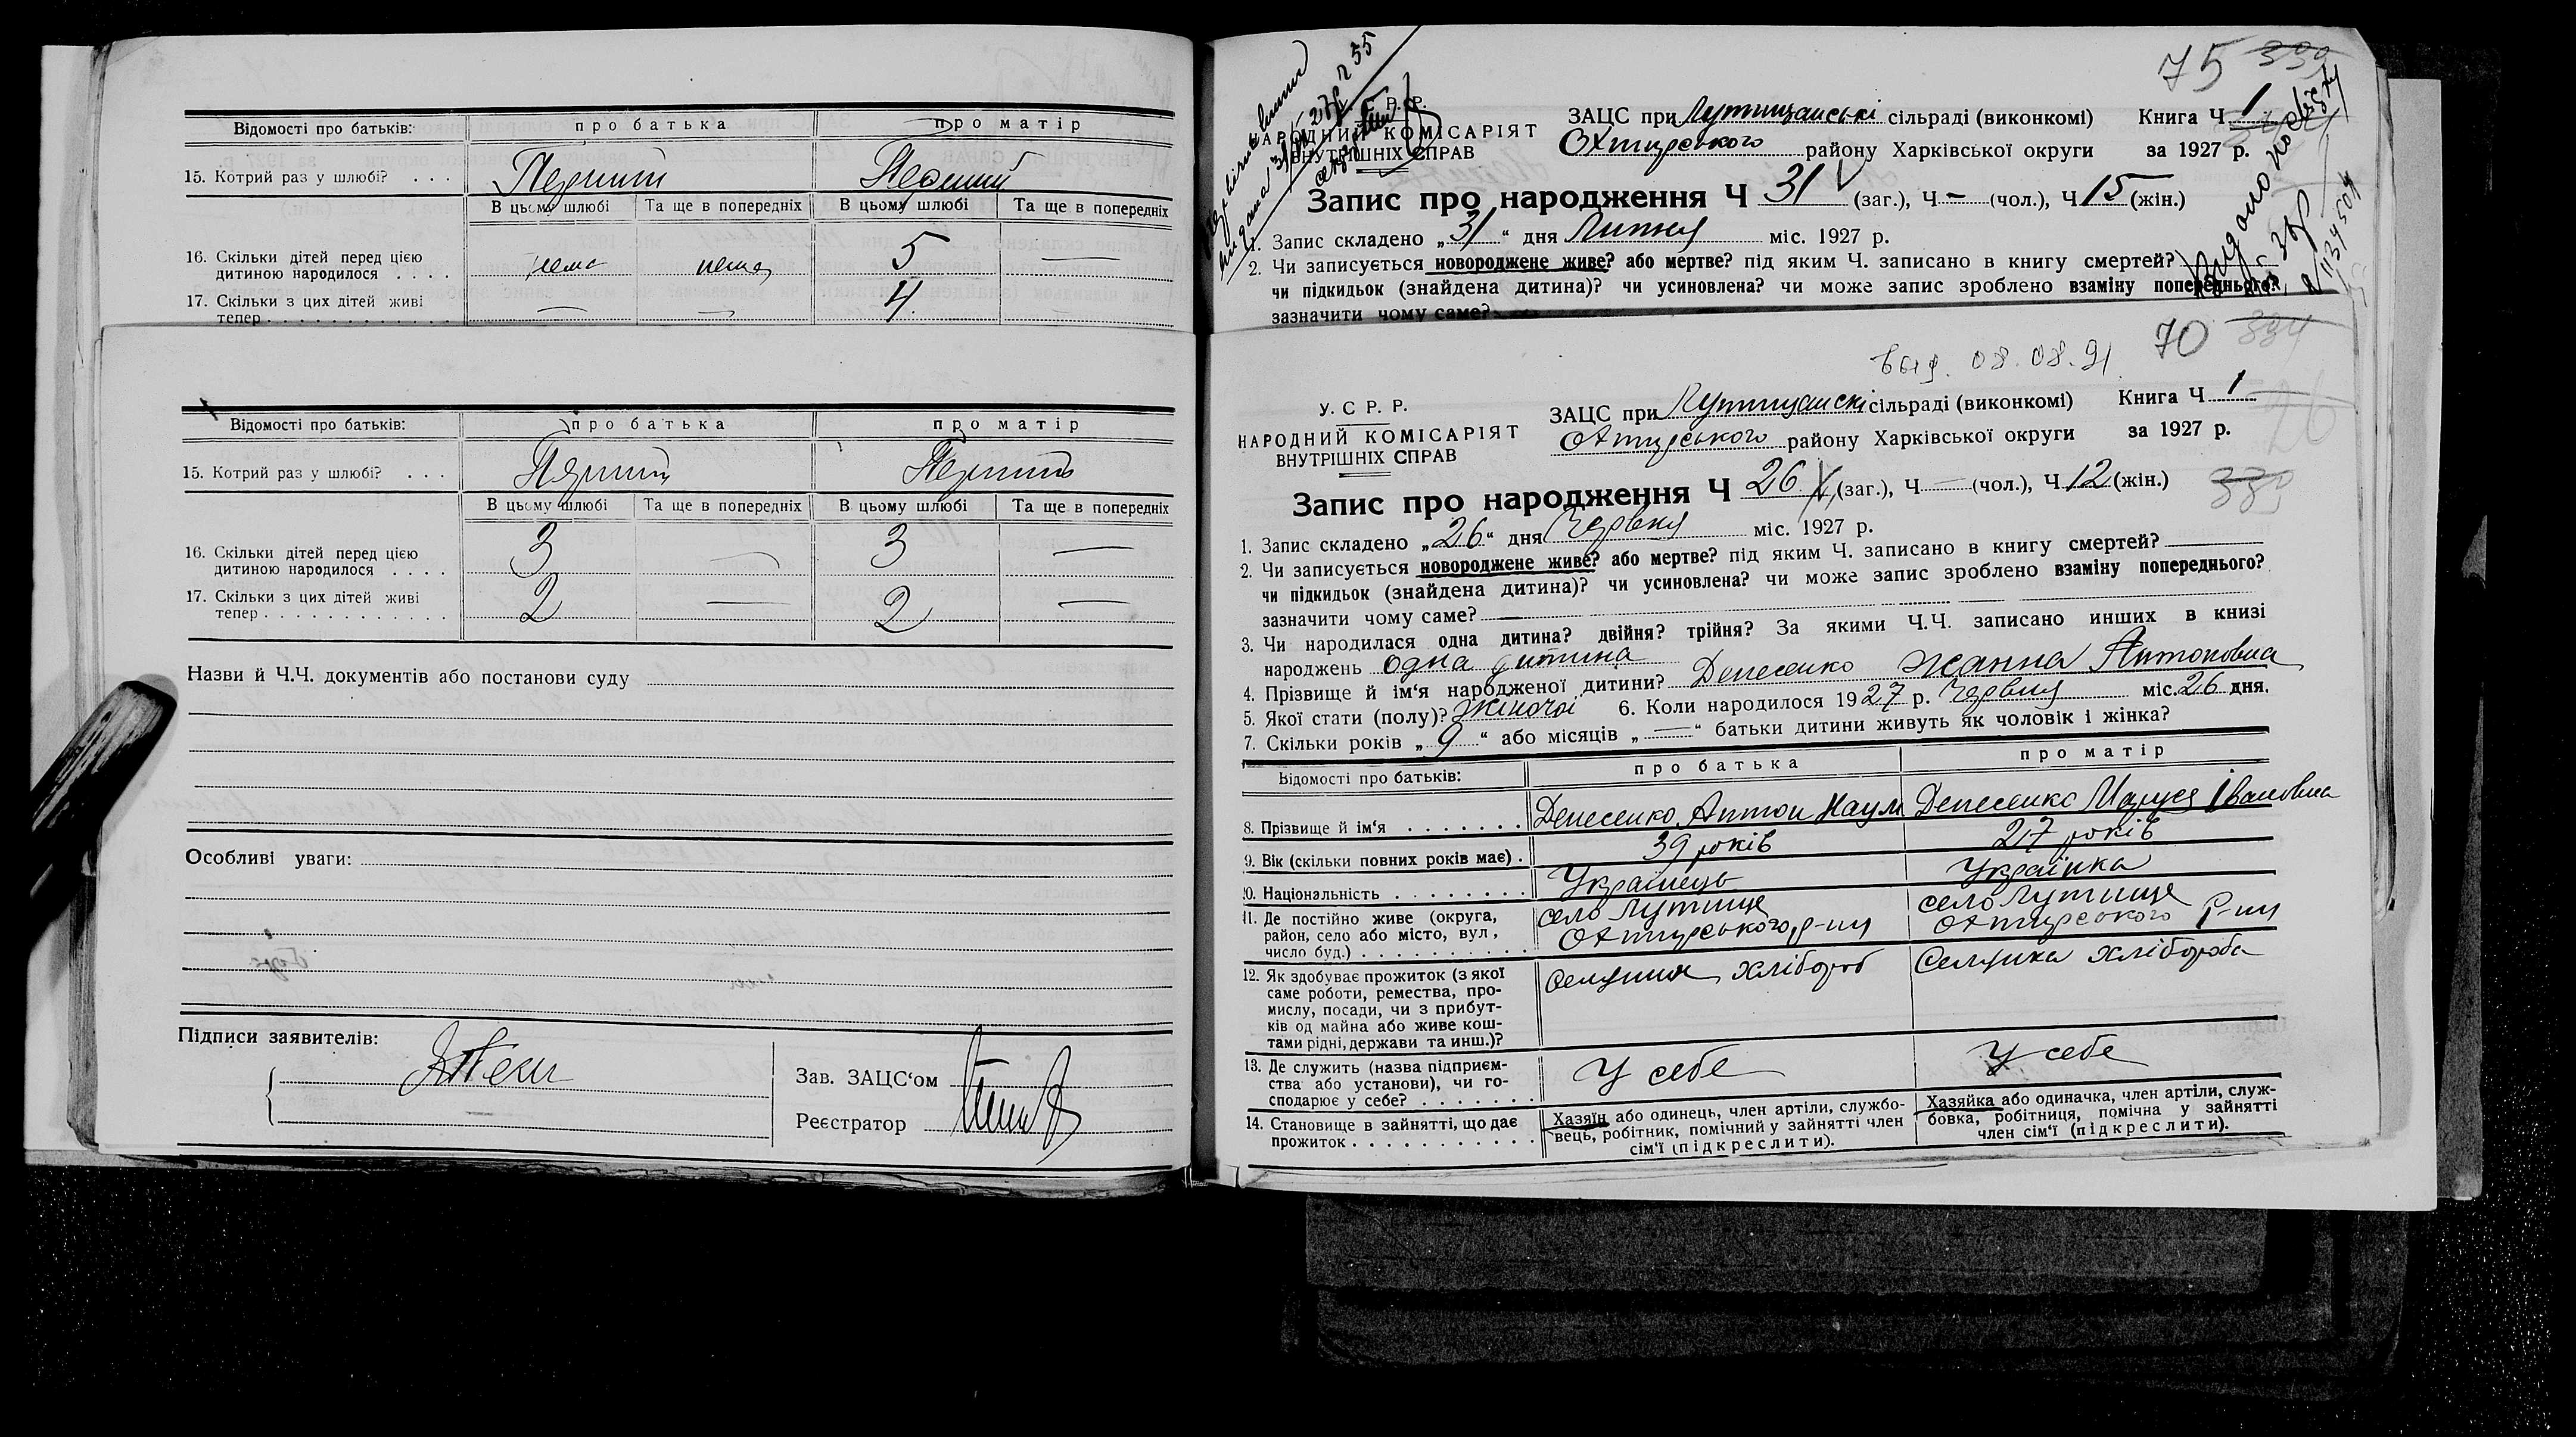 Відомості про батьків: про батька про матір
15. Котрий раз у шлюбі? . . . Перший Перший
В цьому шлюбі Та ще в попередніх В цьому шлюбі Та ще в попередніх
16. Скільки дітей перед цією
дитиною народилося . . . . нема нема 5 —
17. Скільки з цих дітей живі
тепер . . . . . . . . . . . . — — 4
Відомості про батьків: про батька про матір
15. Котрий раз у шлюбі? . . . Перший Перший
В цьому шлюбі Та ще в попередніх В цьому шлюбі Та ще в попередніх
16. Скільки дітей перед цією
дитиною народилося . . . . 3 — 3 —
17. Скільки з цих дітей живі
тепер . . . . . . . . . . . . 2 — 2 —
Назви й Ч.Ч. документів або постанови суду
Особливі уваги:
Підписи заявителів:
Зав. ЗАЦС‘ом
Реєстратор
75
Р. Р.
НАРОДНИЙ КОМІСАРІЯТ
ВНУТРІШНІХ СПРАВ
ЗАЦС при Лутищанські сільраді (виконкомі) Книга Ч 1
Охтирського району Харківської округи за 1927 р.
Запис про народження Ч 31 (заг.), Ч — (чол.), Ч 15 (жін.)
1. Запис складено „31“ дня Липня міс. 1927 р.
2. Чи записується новороджене живе? або мертве? під яким Ч. записано в книгу смертей?
чи підкидьок (знайдена дитина)? чи усиновлена? чи може запис зроблено взаміну попереднього?
зазначити чому саме?
70 334
выд. 08.08.91
У. С Р. Р.
НАРОДНИЙ КОМІСАРІЯТ
ВНУТРІШНІХ СПРАВ
ЗАЦС при Лутищанскі сільраді (виконкомі) Книга Ч 1
Охтирського району Харківської округи за 1927 р.
Запис про народження Ч 26 (заг.), Ч — (чол.), Ч 12 (жін.)
1. Запис складено „26“ дня Червня міс. 1927 р.
2. Чи записується новороджене живе? або мертве? під яким Ч. записано в книгу смертей?
чи підкидьок (знайдена дитина)? чи усиновлена? чи може запис зроблено взаміну попереднього?
зазначити чому саме? —
3. Чи народилася одна дитина? двійня? трійня? За якими Ч.Ч. записано инших в книзі
народжень одна дитина
4. Прізвище й ім‘я народженої дитини? Денесенко Жанна Антоновна
5. Якої стати (полу)? Жіночої 6. Коли народилося 1927 р. Червня міс. 26 дня.
7. Скільки років „9“ або місяців „—“ батьки дитини живуть як чоловік і жінка?
Відомості про батьків: про батька про матір
8. Прізвище й ім‘я . . . . . . . Денесенко Антон Наум Денесенко Маруся Івановна
9. Вік (скільки повних років має) . 39 років 27 років
10. Національність . . . . . . . . Українець Українка
11. Де постійно живе (округа,
район, село або місто, вул,
число буд.) . . . . . . . . . .
село Лутище
Охтирського р-ну
село Лутище
Охтирського Р-ну
12. Як здобуває прожиток (з якої
саме роботи, ремества, про-
мислу, посади, чи з прибут-
ків од майна або живе кош-
тами рідні, держави та инш.)?
Селянин хлібороб
Селянка хлібороба
13. Де служить (назва підприєм-
ства або установи), чи го-
сподарює у себе? . . . . . . . У себе У себе
14. Становище в зайнятті, що дає
прожиток . . . . . . . . . . .
Хазяїн або одинець, член артіли, службо-
вець, робітник, помічний у зайнятті член
сім‘ї (підкреслити).
Хазяйка або одиначка, член артіли, служ-
бовка, робітниця, помічна у зайнятті
член сім‘ї (підкреслити).